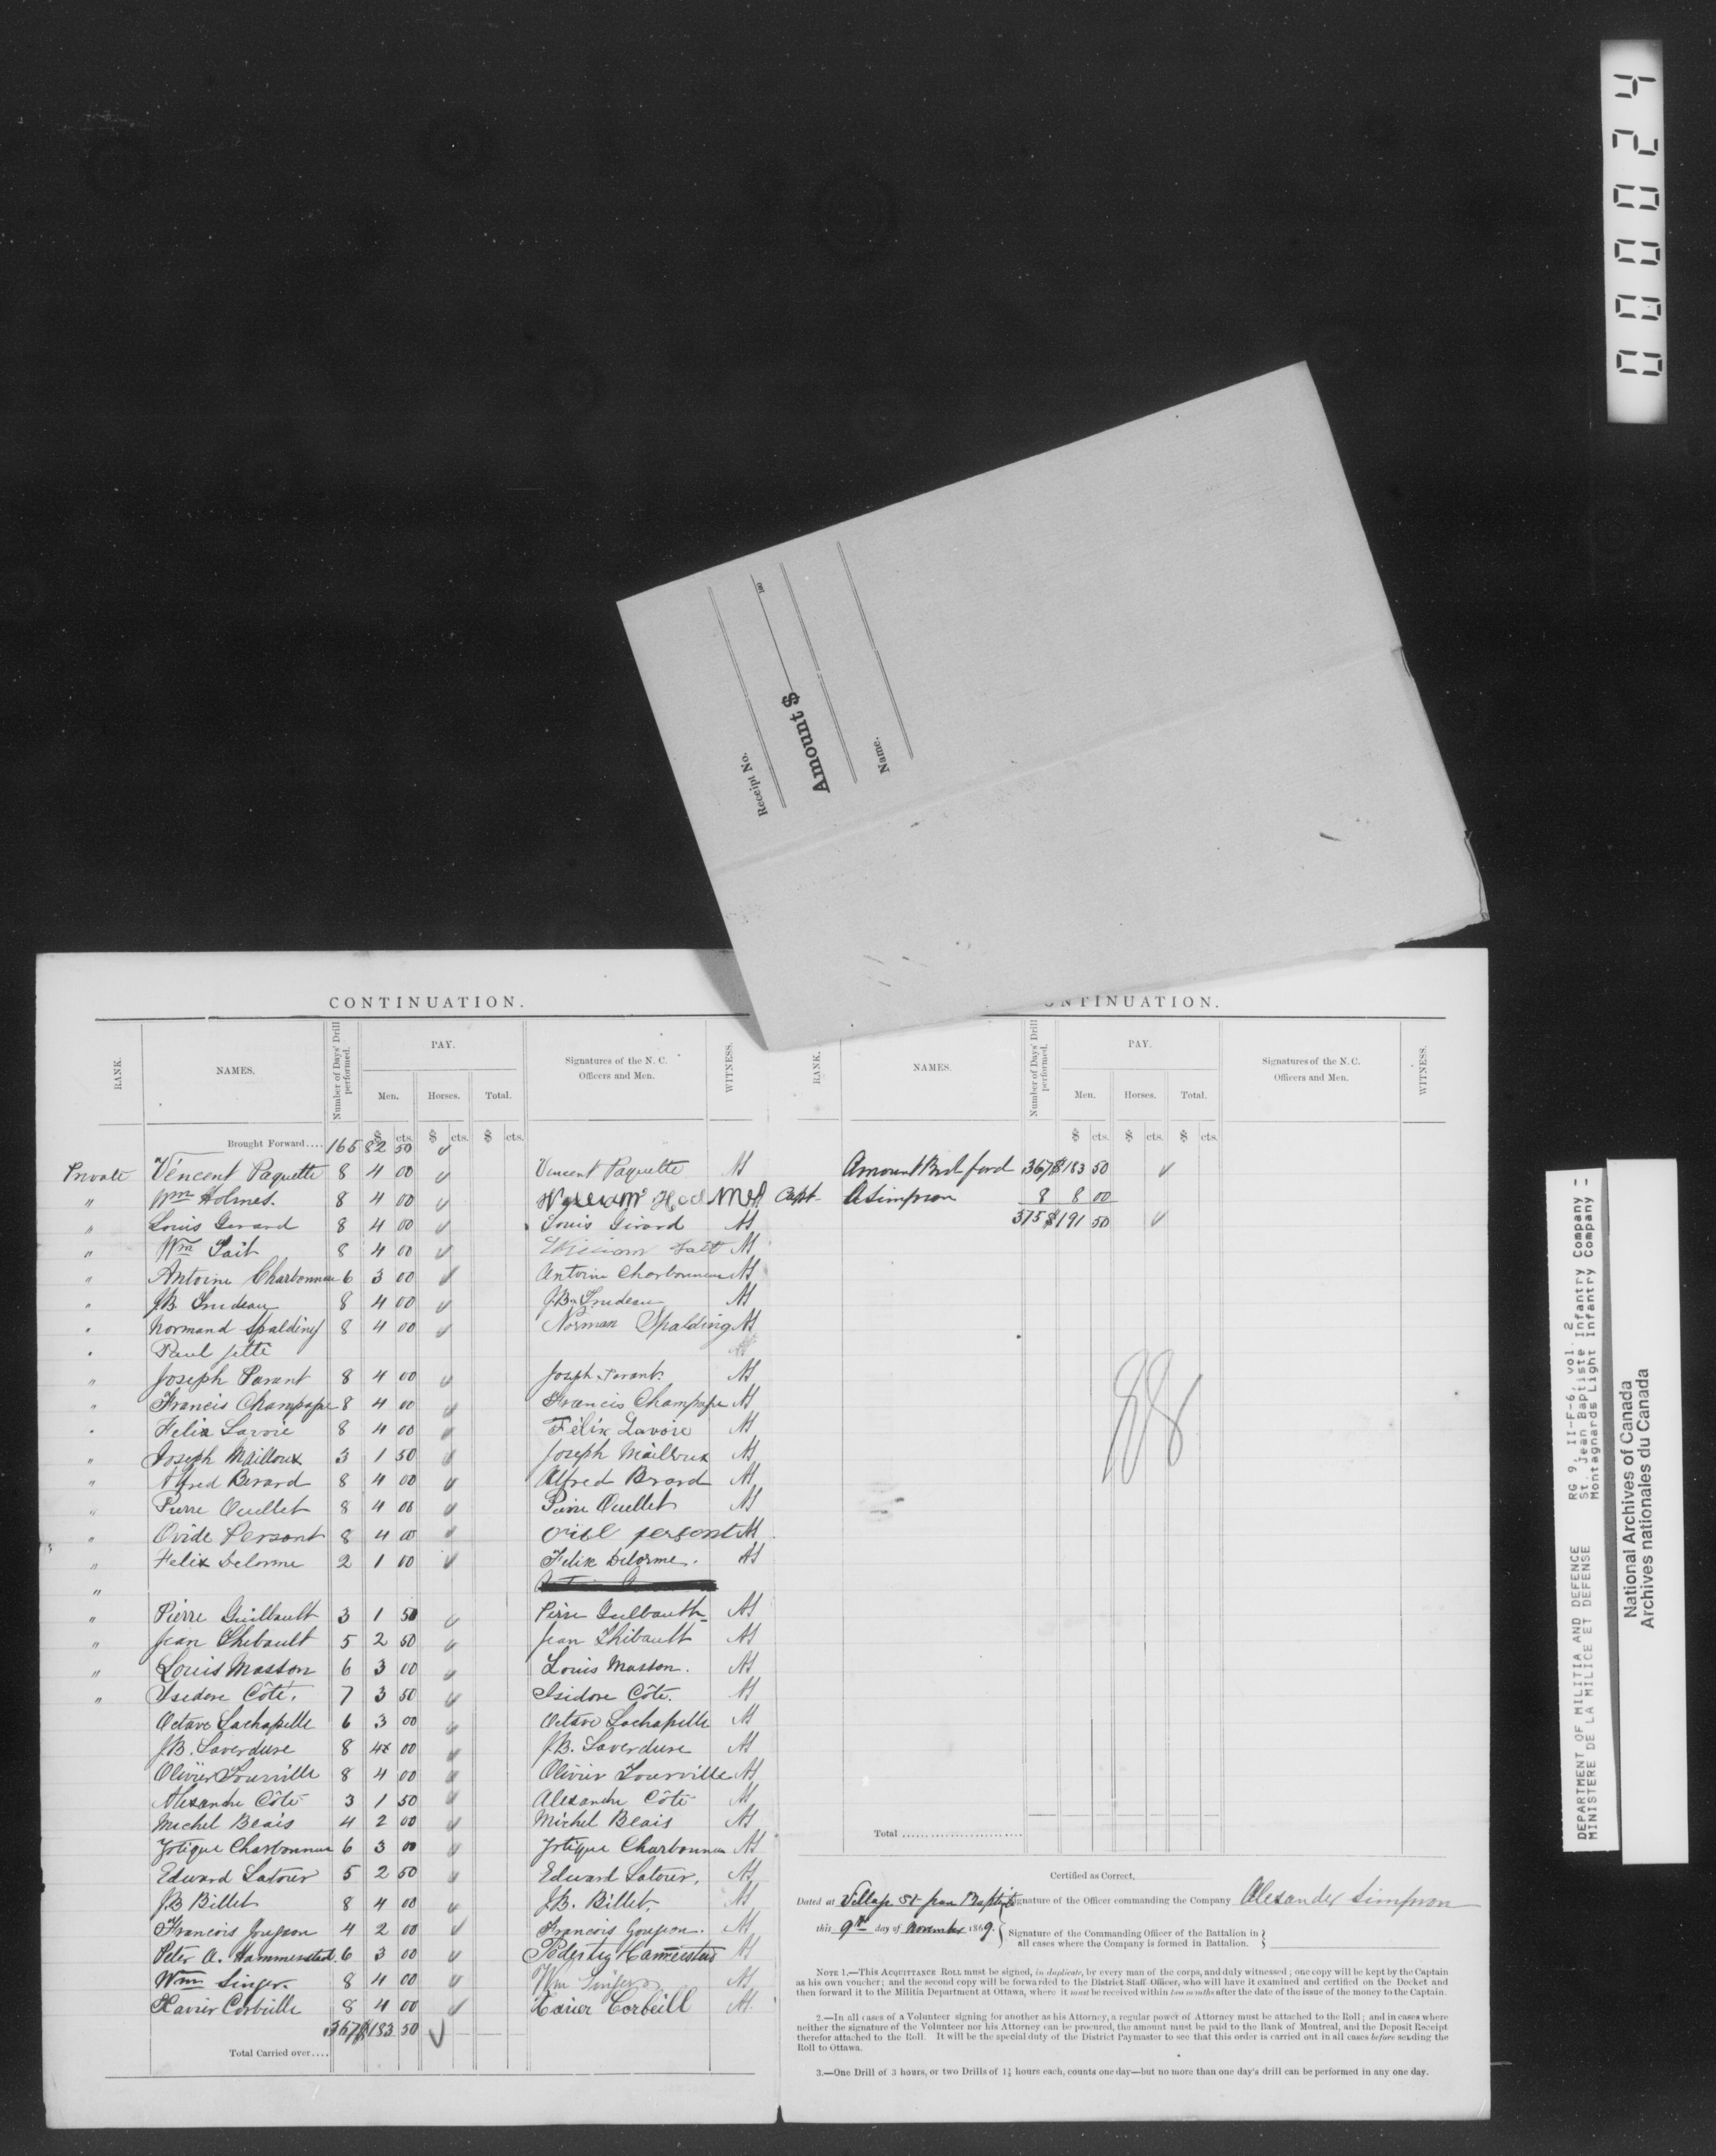 000024
Receipt No.
Amount $ 100
Name.
CONTINUATION.
RANK. NAMES. Number of Days' Drill performed. PAY. Men. Horses. Total. Signatures of the N. C. Officers and Men. WITNESS.
$ cts. $ cts. $ cts.
Brought Forward.... 165 82 50
Private Vincent Paquette 8 4 00 Vincent Paquette AS
" Wm Holmes. 8 4 00
" Louis Gerard 8 4 00 Louis Girard AS
" Wm Tait 8 4 00 William Tait AS
" Antoine Charbonneau 6 3 00 Antoine Charbonneau AS
" J.B. Trudeau 8 4 00 J.B. Trudeau AS
" Normand Spalding 8 4 00 Norman Spalding AS
" Paul Jetté
" Joseph Parant 8 4 00 Joseph Parant. AS
" Francis Champagne 8 4 00 Francis Champagne AS
" Felix Lavoie 8 4 00 Félix Lavoie AS
" Joseph Mailloux 3 1 50 Joseph Mailloux AS
" Alfred Berard 8 4 00 Alfred Berard AS
" Pierre Ouellet 8 4 00 Pierre Ouellet AS
" Ovide Persont 8 4 00 persont AS
" Felix Delorme 2 1 00 Felix Delorme. AS
"
" Pierre Guilbault 3 1 50 Pierre Guilbault AS
" Jean Thibault 5 2 50 Jean Thibault AS
" Louis Masson 6 3 00 Louis Masson. AS
" Isidore Côté. 7 3 50 Isidore Côté. AS
Octave Lachapelle 6 3 00 Octave Lachapelle AS
J.B. Laverdure 8 4 00 J.B. Laverdure AS
Olivier Tourville 8 4 00 Olivier Tourville AS
Alexandre Côté 3 1 50 Alexandre Côté AS
Michel Beais 4 2 00 Michel Blais AS
Charbonneau 6 3 00 Charbonneau AS
Edward Latour 5 2 50 Edward Latour. AS
J.B Billet 8 4 00 J.B. Billet. AS
Francois Goujeon 4 2 00 Francois Goujeon. AS
Peter A. Hammerstad. 6 3 00 AS
Wm Singer. 8 4 00 Wm Singer AS
Xavier Corbeille 8 4 00 Xavier Corbeill AS
367 $183 50
Total Carried over....
NTINUATION.
RANK. NAMES. Number of Days' Drill performed. PAY. Men. Horses. Total. Signatures of the N. C. Officers and Men. WITNESS.
$ cts. $ cts. $ cts.
Amount Brot ford 367 $183 50
Capt A Simpson 8 8 00
375 $191 50
88
Total
Certified as Correct,
Dated at Village St Jean Baptiste Signature of the Officer commanding the Company Alexander Simpson
this 9th day of November 1869. Signature of the Commanding Officer of the Battalion in all cases where the Company is formed in Battalion.
NOTE 1.—This ACQUITTANCE ROLL must be signed, in duplicate, by every man of the corps, and duly witnessed; one copy will be kept by the Captain
as his own voucher; and the second copy will be forwarded to the District Staff Officer, who will have it examined and certified on the Docket and
then forward it to the Militia Department at Ottawa, where it must be received within two months after the date of the issue of the money to the Captain.
2.—In all cases of a Volunteer signing for another as his Attorney, a regular power of Attorney must be attached to the Roll; and in cases where
neither the signature of the Volunteer nor his Attorney can be procured, the amount must be paid to the Bank of Montreal, and the Deposit Receipt
therefor attached to the Roll. It will be the special duty of the District Paymaster to see that this order is carried out in all cases before sending the
Roll to Ottawa.
3.—One Drill of 3 hours, or two Drills of 1½ hours each, counts one day—but no more than one day's drill can be performed in any one day.
DEPARTMENT OF MILITIA AND DEFENCE RG 9, II-F-6, vol. 2
MINISTERE DE LA MILICE ET DEFENSE St. Jean Baptiste Infantry Company -
Montagnards Light Infantry Company -
National Archives of Canada
Archives nationales du Canada